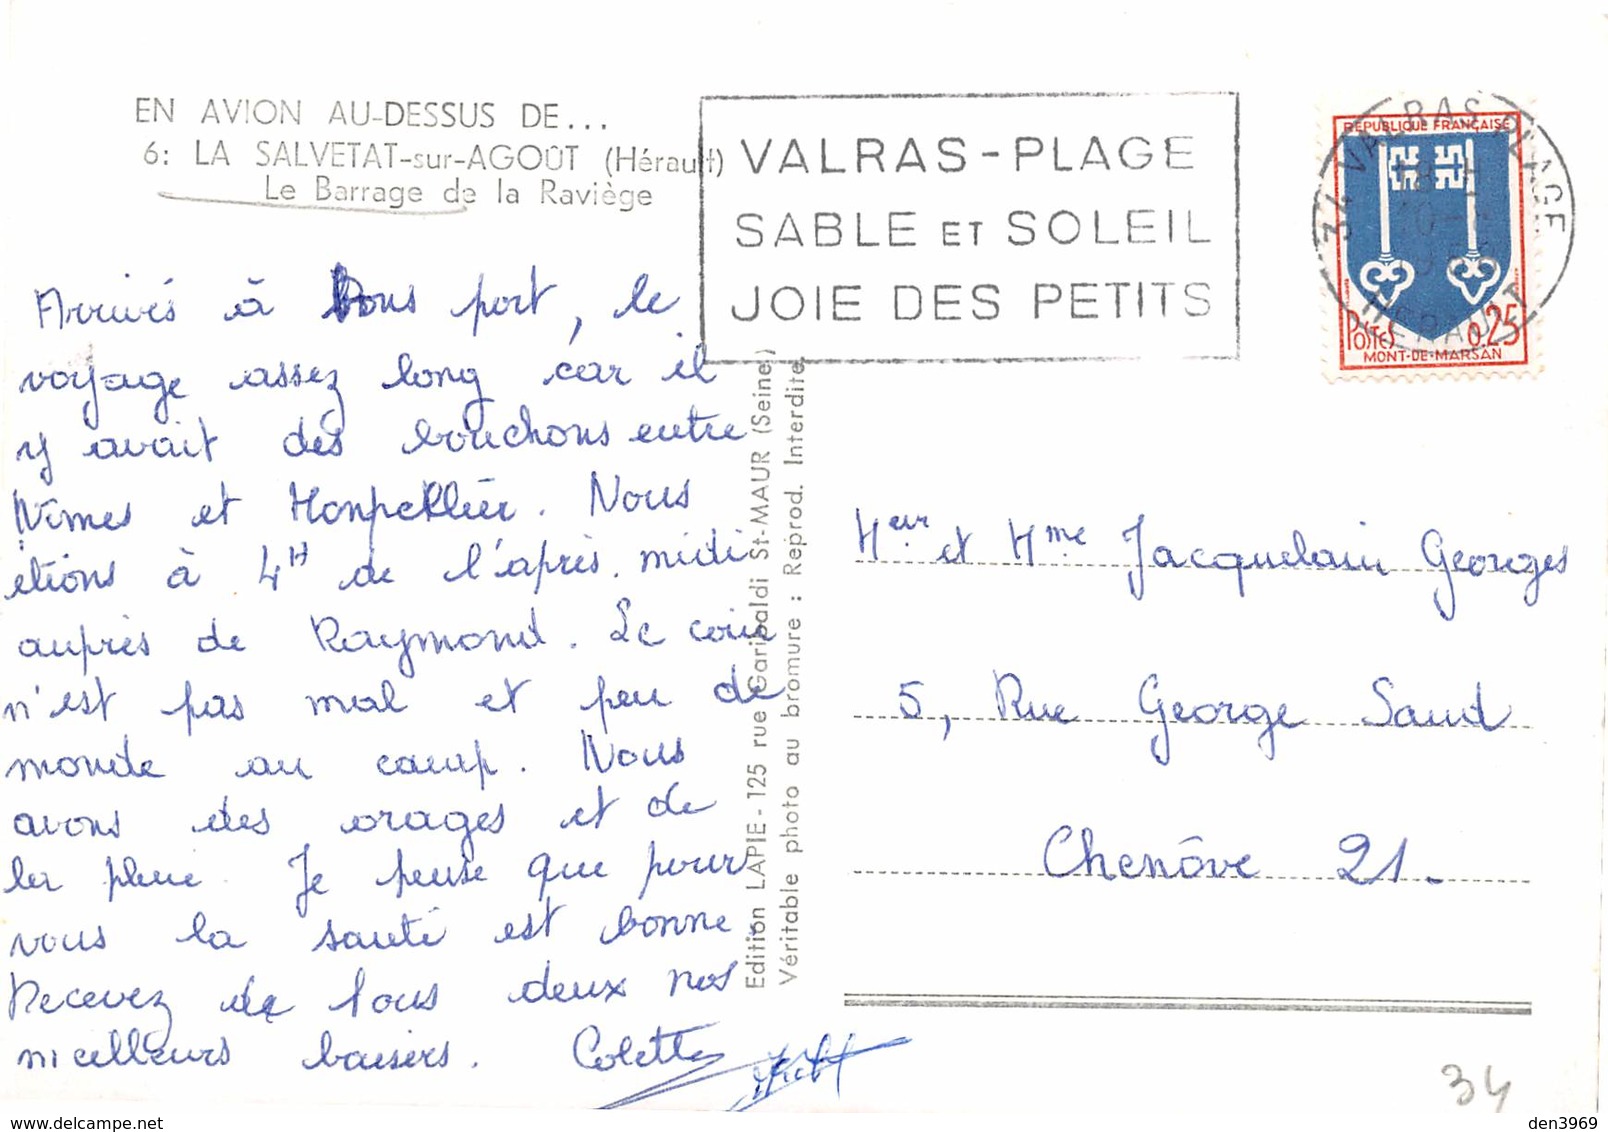 EN AVION AU-DESSUS DE...
6: LA SALVETAT-sur-AGOÛT (Hérault)
Le Barrage de la Raviège
VALRAS-PLAGE
SABLE ET SOLEIL
JOIE DES PETITS
34 VALRAS PLAGE
HERAULT
REPUBLIQUE FRANÇAISE
POSTES 0,25
MONT-DE-MARSAN
Arrivés à Bons port, le
voyage assez long car il
y avait des bouchons entre
Nîmes et Monpellier. Nous
étions à 4H de l'après. midi
auprès de Raymond. Le coin
n'est pas mal et peu de
monde au camp. Nous
avons des orages et de
la pluie. Je pense que pour
vous la santé est bonne
Recevez de tous deux nos
meilleurs baisers. Colette
Edition LAPIE - 125 rue Garibaldi St-MAUR (Seine)
Véritable photo au bromure : Reprod. Interdite
Meur et Mme Jacquelain Georges
5, Rue George Sand
Chenôve 21.
34
den3969